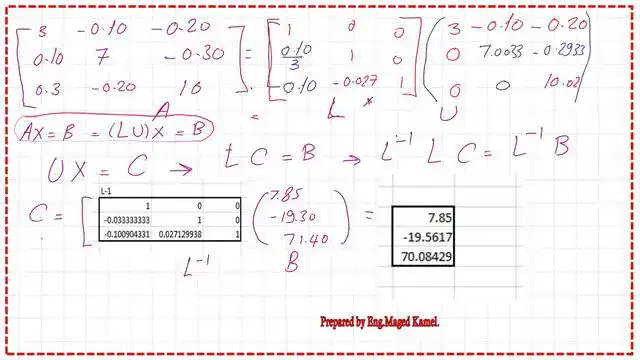 [3 -0.10 -0.20] = [1 0 0] (3 -0.10 -0.20)
[0.10 7 -0.30] [0.10/3 1 0] (0 7.0033 -0.2933)
[0.3 -0.20 10] [-0.10 -0.027 1] (0 0 10.02)
A = L * U
AX = B = (LU)X = B
UX = C → LC = B → L⁻¹ L C = L⁻¹ B
L-1
C = [1 0 0 (7.85 = 7.85
-0.033333333 1 0 -19.30 -19.5617
-0.100904331 0.027129938 1 71.40) 70.08429
L⁻¹ B
Prepared by Eng.Maged Kamel.